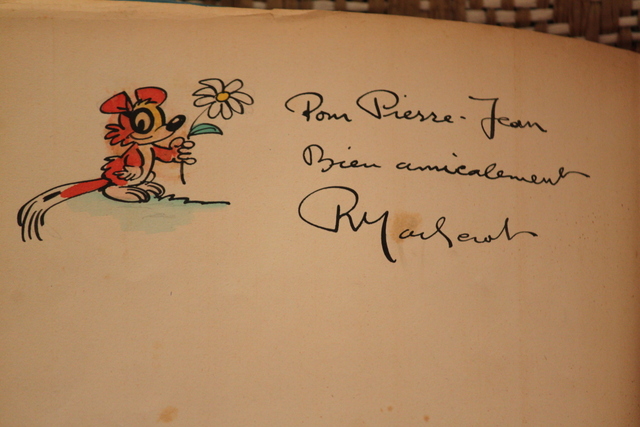 Pour Pierre-Jean
Bien amicalement
RMacherot